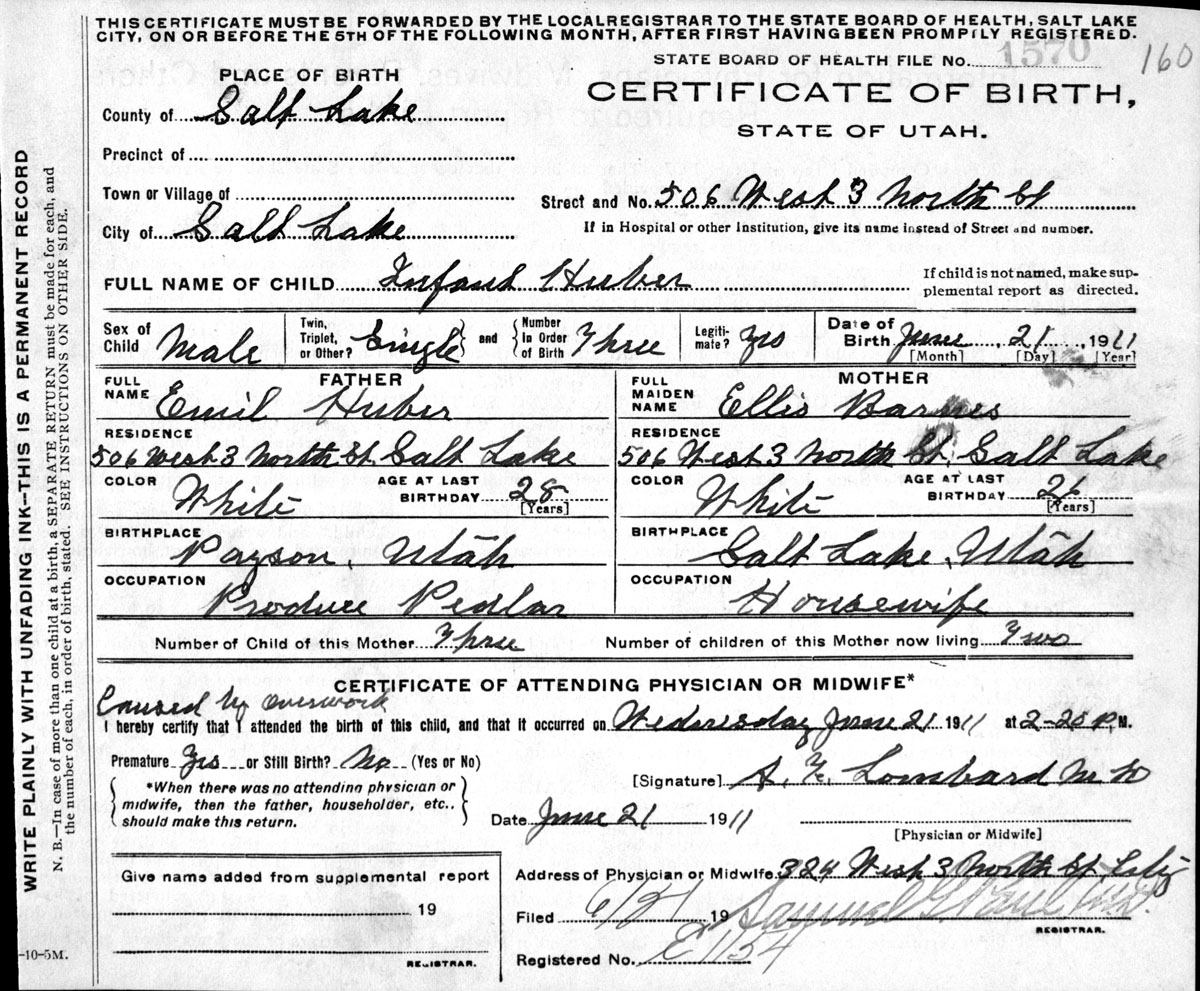 THIS CERTIFICATE MUST BE FORWARDED BY THE LOCAL REGISTRAR TO THE STATE BOARD OF HEALTH, SALT LAKE
CITY, ON OR BEFORE THE 5TH OF THE FOLLOWING MONTH, AFTER FIRST HAVING BEEN PROMPTLY REGISTERED.
STATE BOARD OF HEALTH FILE No. 1570
160
PLACE OF BIRTH
CERTIFICATE OF BIRTH,
STATE OF UTAH.
County of Salt Lake
Precinct of
Town or Village of
Street and No. 506 West 3 North St
City of Salt Lake
If in Hospital or other Institution, give its name instead of Street and number.
FULL NAME OF CHILD Infant Huber
If child is not named, make sup-
plemental report as directed.
Sex of Child Male
Twin, Triplet, or Other? Single and Number In Order of Birth Three
Legiti-mate? Yes
Date of Birth June 21, 1911
[Month] [Day] [Year]
FATHER
FULL NAME Emil Huber
RESIDENCE 506 West 3 North St. Salt Lake
COLOR White AGE AT LAST BIRTHDAY 28 [Years]
BIRTHPLACE Payson, Utah
OCCUPATION Produce Pedlar
MOTHER
FULL MAIDEN NAME Ellis Barnes
RESIDENCE 506 West 3 North St. Salt Lake
COLOR White AGE AT LAST BIRTHDAY [Years]
BIRTHPLACE Salt Lake, Utah
OCCUPATION Housewife
Number of Child of this Mother Three Number of children of this Mother now living Two
CERTIFICATE OF ATTENDING PHYSICIAN OR MIDWIFE*
Caused by overwork
I hereby certify that I attended the birth of this child, and that it occurred on Wednesday June 21 1911 at 2-20 P.M.
Premature Yes or Still Birth? No (Yes or No)
*When there was no attending physician or
midwife, then the father, householder, etc.,
should make this return.
[Signature] Lombard M D
Date June 21 1911
[Physician or Midwife]
Give name added from supplemental report
19
REGISTRAR.
Address of Physician or Midwife 324 West 3 North St. City
Filed 6/21 19 Samuel G Paul
REGISTRAR.
Registered No. E1154
-10-5M.
WRITE PLAINLY WITH UNFADING INK--THIS IS A PERMANENT RECORD
N. B.—In case of more than one child at a birth, a SEPARATE RETURN must be made for each, and
the number of each, in order of birth, stated. SEE INSTRUCTIONS ON OTHER SIDE.